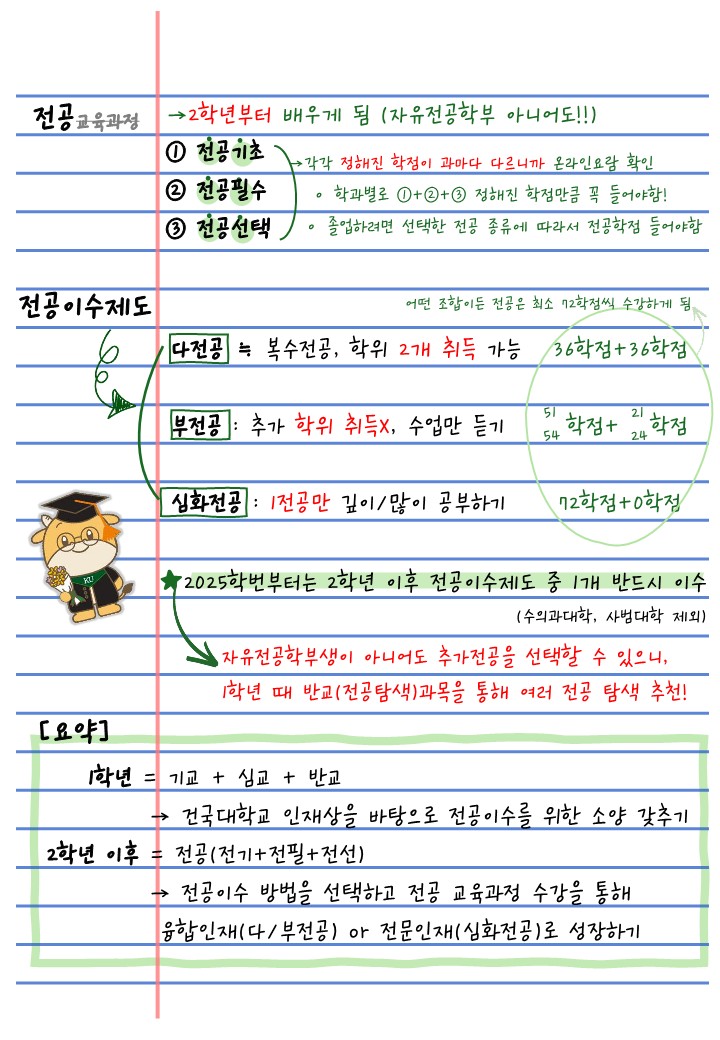 전공교육과정 →2학년부터 배우게 됨 (자유전공학부 아니어도!!)
① 전공기초
→각각 정해진 학점이 과마다 다르니까 온라인요람 확인
② 전공필수
∘ 학과별로 ①+②+③ 정해진 학점만큼 꼭 들어야함!
③ 전공선택
∘ 졸업하려면 선택한 전공 종류에 따라서 전공학점 들어야함
전공이수제도
어떤 조합이든 전공은 최소 72학점씩 수강하게 됨
다전공 ≒ 복수전공, 학위 2개 취득 가능 36학점+36학점
부전공 : 추가 학위 취득X, 수업만 듣기 51 54 학점+ 21 24 학점
심화전공 : 1전공만 깊이/많이 공부하기 72학점+0학점
KU
★ 2025학번부터는 2학년 이후 전공이수제도 중 1개 반드시 이수
(수의과대학, 사범대학 제외)
자유전공학부생이 아니어도 추가전공을 선택할 수 있으니,
1학년 때 반교(전공탐색)과목을 통해 여러 전공 탐색 추천!
[요약]
1학년 = 기교 + 심교 + 반교
→ 건국대학교 인재상을 바탕으로 전공이수를 위한 소양 갖추기
2학년 이후 = 전공(전기+전필+전선)
→ 전공이수 방법을 선택하고 전공 교육과정 수강을 통해
융합인재(다/부전공) or 전문인재(심화전공)로 성장하기